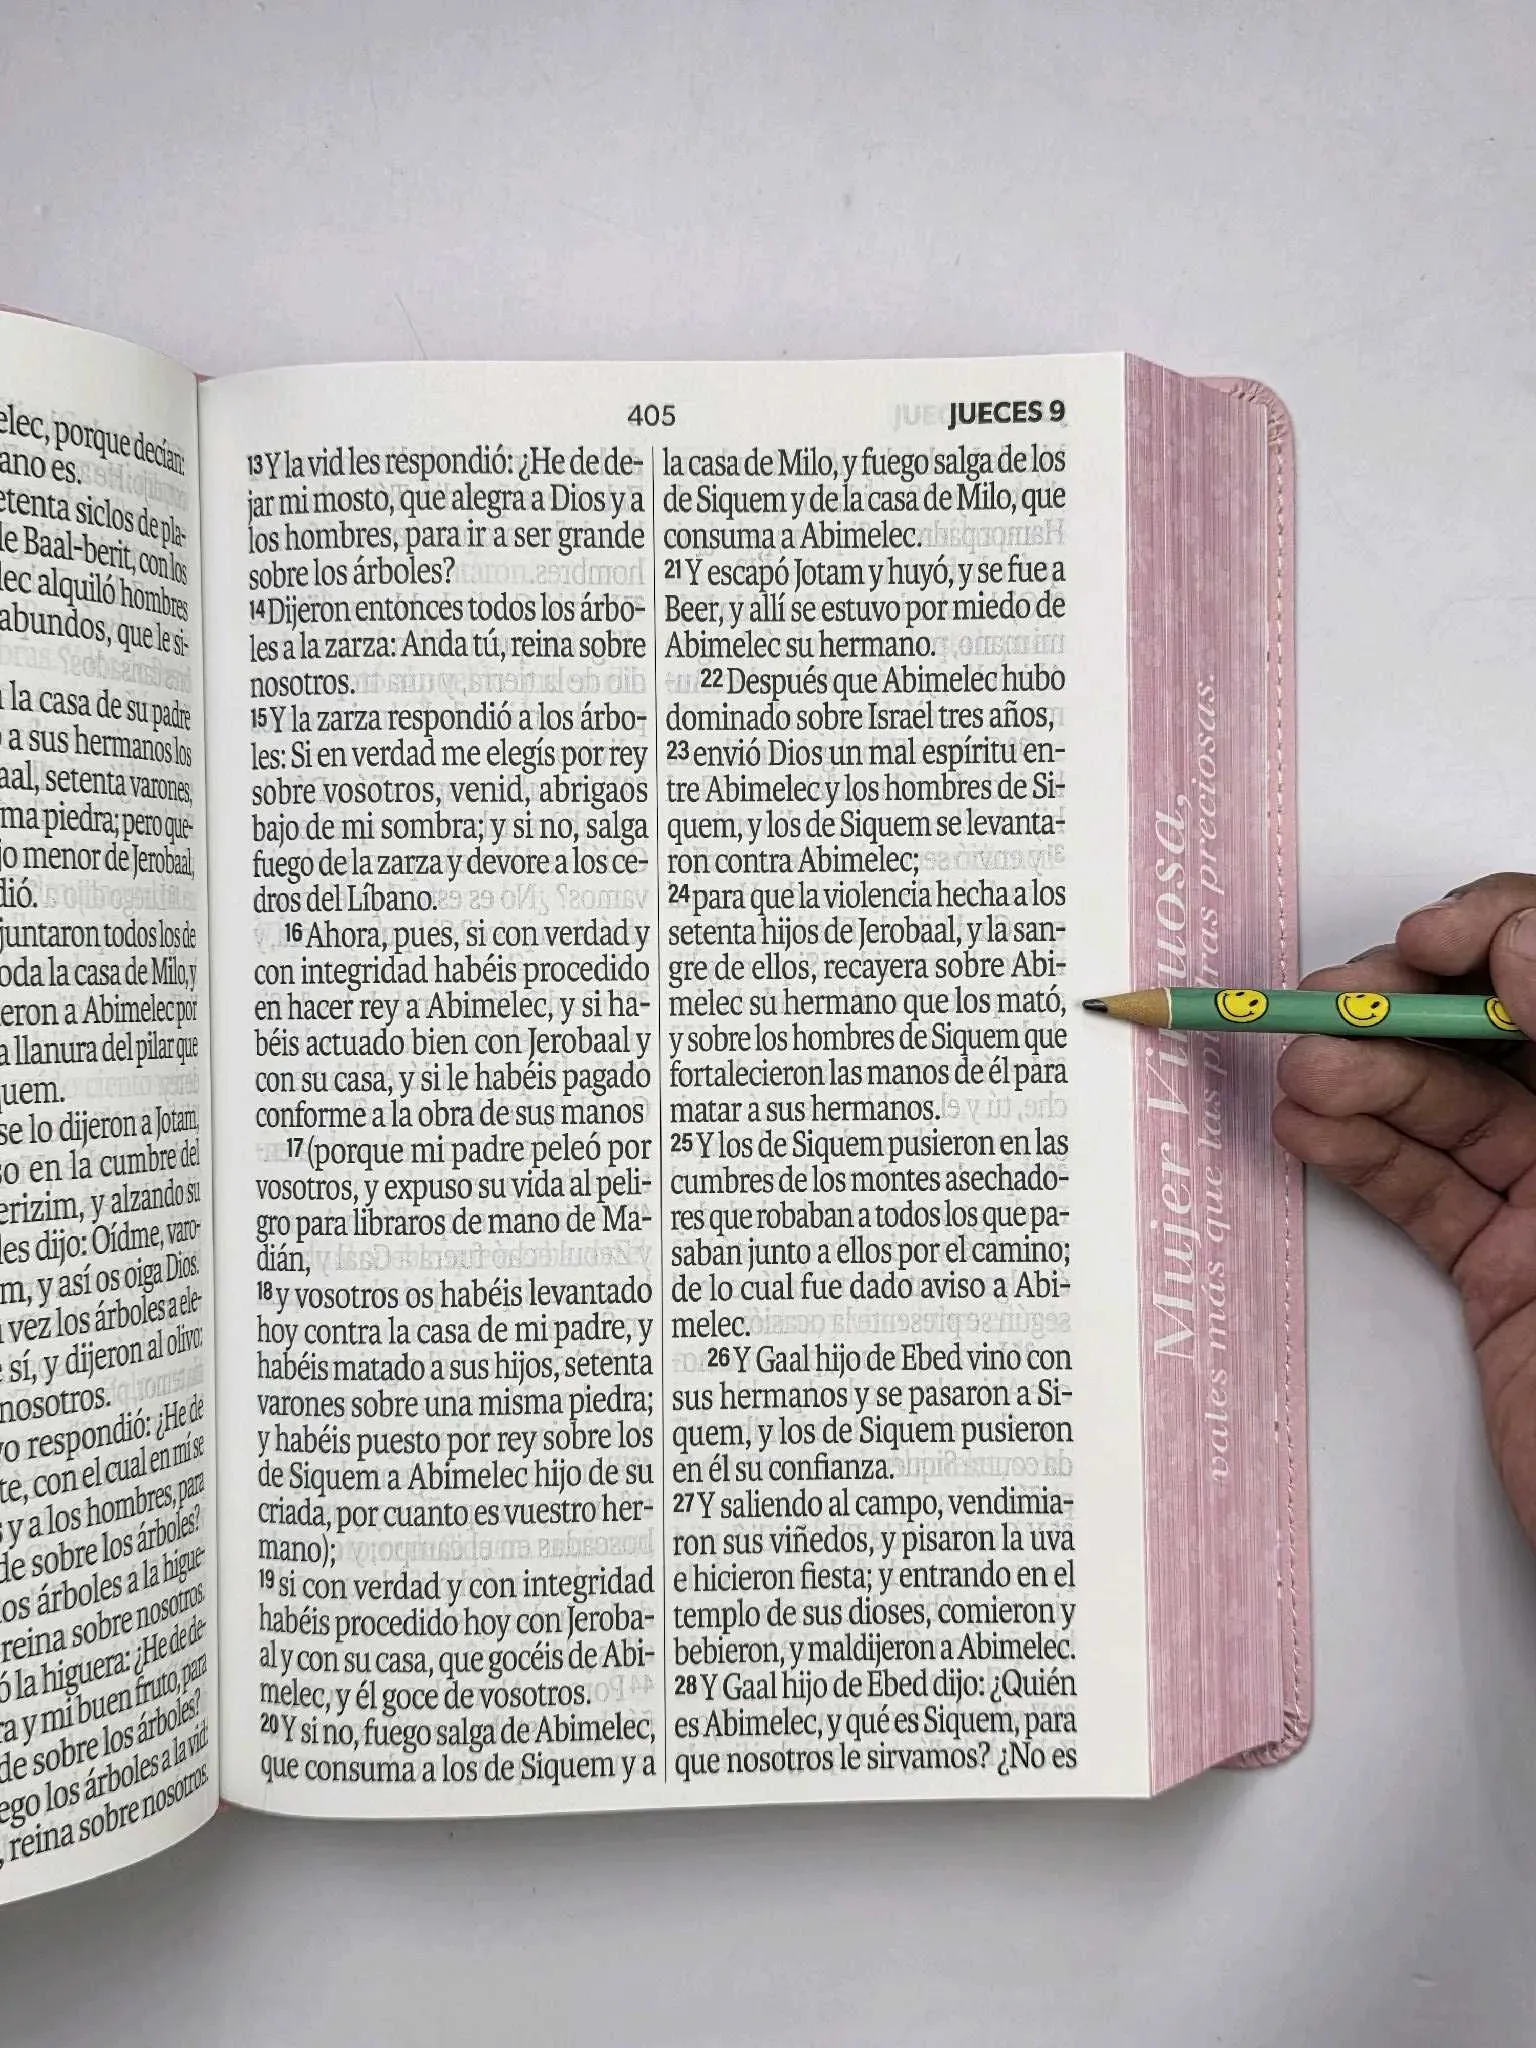 elec, porque decían:
ano es.
etenta siclos de pla-
le Baal-berit, con los
lec alquiló hombres
abundos, que le si-
la casa de su padre
a sus hermanos los
aal, setenta varones,
ma piedra; pero que-
jo menor de Jerobaal,
dió.
juntaron todos los de
oda la casa de Milo, y
eron a Abimelec por
a llanura del pilar que
quem.
se lo dijeron a Jotam,
so en la cumbre del
erizim, y alzando su
les dijo: Oídme, varo-
m, y así os oiga Dios.
vez los árboles a ele-
sí, y dijeron al olivo:
nosotros.
vo respondió: ¿He de
te, con el cual en mí se
s y a los hombres, para
de sobre los árboles?
os árboles a la higue-
reina sobre nosotros.
ó la higuera: ¿He de de-
ra y mi buen fruto, para
de sobre los árboles?
ego los árboles a la vid:
, reina sobre nosotros.
405
JUECES 9
13 Y la vid les respondió: ¿He de de-
jar mi mosto, que alegra a Dios y a
los hombres, para ir a ser grande
sobre los árboles?
14 Dijeron entonces todos los árbo-
les a la zarza: Anda tú, reina sobre
nosotros.
15 Y la zarza respondió a los árbo-
les: Si en verdad me elegís por rey
sobre vosotros, venid, abrigaos
bajo de mi sombra; y si no, salga
fuego de la zarza y devore a los ce-
dros del Líbano.
16 Ahora, pues, si con verdad y
con integridad habéis procedido
en hacer rey a Abimelec, y si ha-
béis actuado bien con Jerobaal y
con su casa, y si le habéis pagado
conforme a la obra de sus manos
17 (porque mi padre peleó por
vosotros, y expuso su vida al peli-
gro para libraros de mano de Ma-
dián,
18 y vosotros os habéis levantado
hoy contra la casa de mi padre, y
habéis matado a sus hijos, setenta
varones sobre una misma piedra;
y habéis puesto por rey sobre los
de Siquem a Abimelec hijo de su
criada, por cuanto es vuestro her-
mano);
19 si con verdad y con integridad
habéis procedido hoy con Jeroba-
al y con su casa, que gocéis de Abi-
melec, y él goce de vosotros.
20 Y si no, fuego salga de Abimelec,
que consuma a los de Siquem y a
la casa de Milo, y fuego salga de los
de Siquem y de la casa de Milo, que
consuma a Abimelec.
21 Y escapó Jotam y huyó, y se fue a
Beer, y allí se estuvo por miedo de
Abimelec su hermano.
22 Después que Abimelec hubo
dominado sobre Israel tres años,
23 envió Dios un mal espíritu en-
tre Abimelec y los hombres de Si-
quem, y los de Siquem se levanta-
ron contra Abimelec;
24 para que la violencia hecha a los
setenta hijos de Jerobaal, y la san-
gre de ellos, recayera sobre Abi-
melec su hermano que los mató,
y sobre los hombres de Siquem que
fortalecieron las manos de él para
matar a sus hermanos.
25 Y los de Siquem pusieron en las
cumbres de los montes asechado-
res que robaban a todos los que pa-
saban junto a ellos por el camino;
de lo cual fue dado aviso a Abi-
melec.
26 Y Gaal hijo de Ebed vino con
sus hermanos y se pasaron a Si-
quem, y los de Siquem pusieron
en él su confianza.
27 Y saliendo al campo, vendimia-
ron sus viñedos, y pisaron la uva
e hicieron fiesta; y entrando en el
templo de sus dioses, comieron y
bebieron, y maldijeron a Abimelec.
28 Y Gaal hijo de Ebed dijo: ¿Quién
es Abimelec, y qué es Siquem, para
que nosotros le sirvamos? ¿No es
Mujer Virtuosa,
vales más que las piedras preciosas.